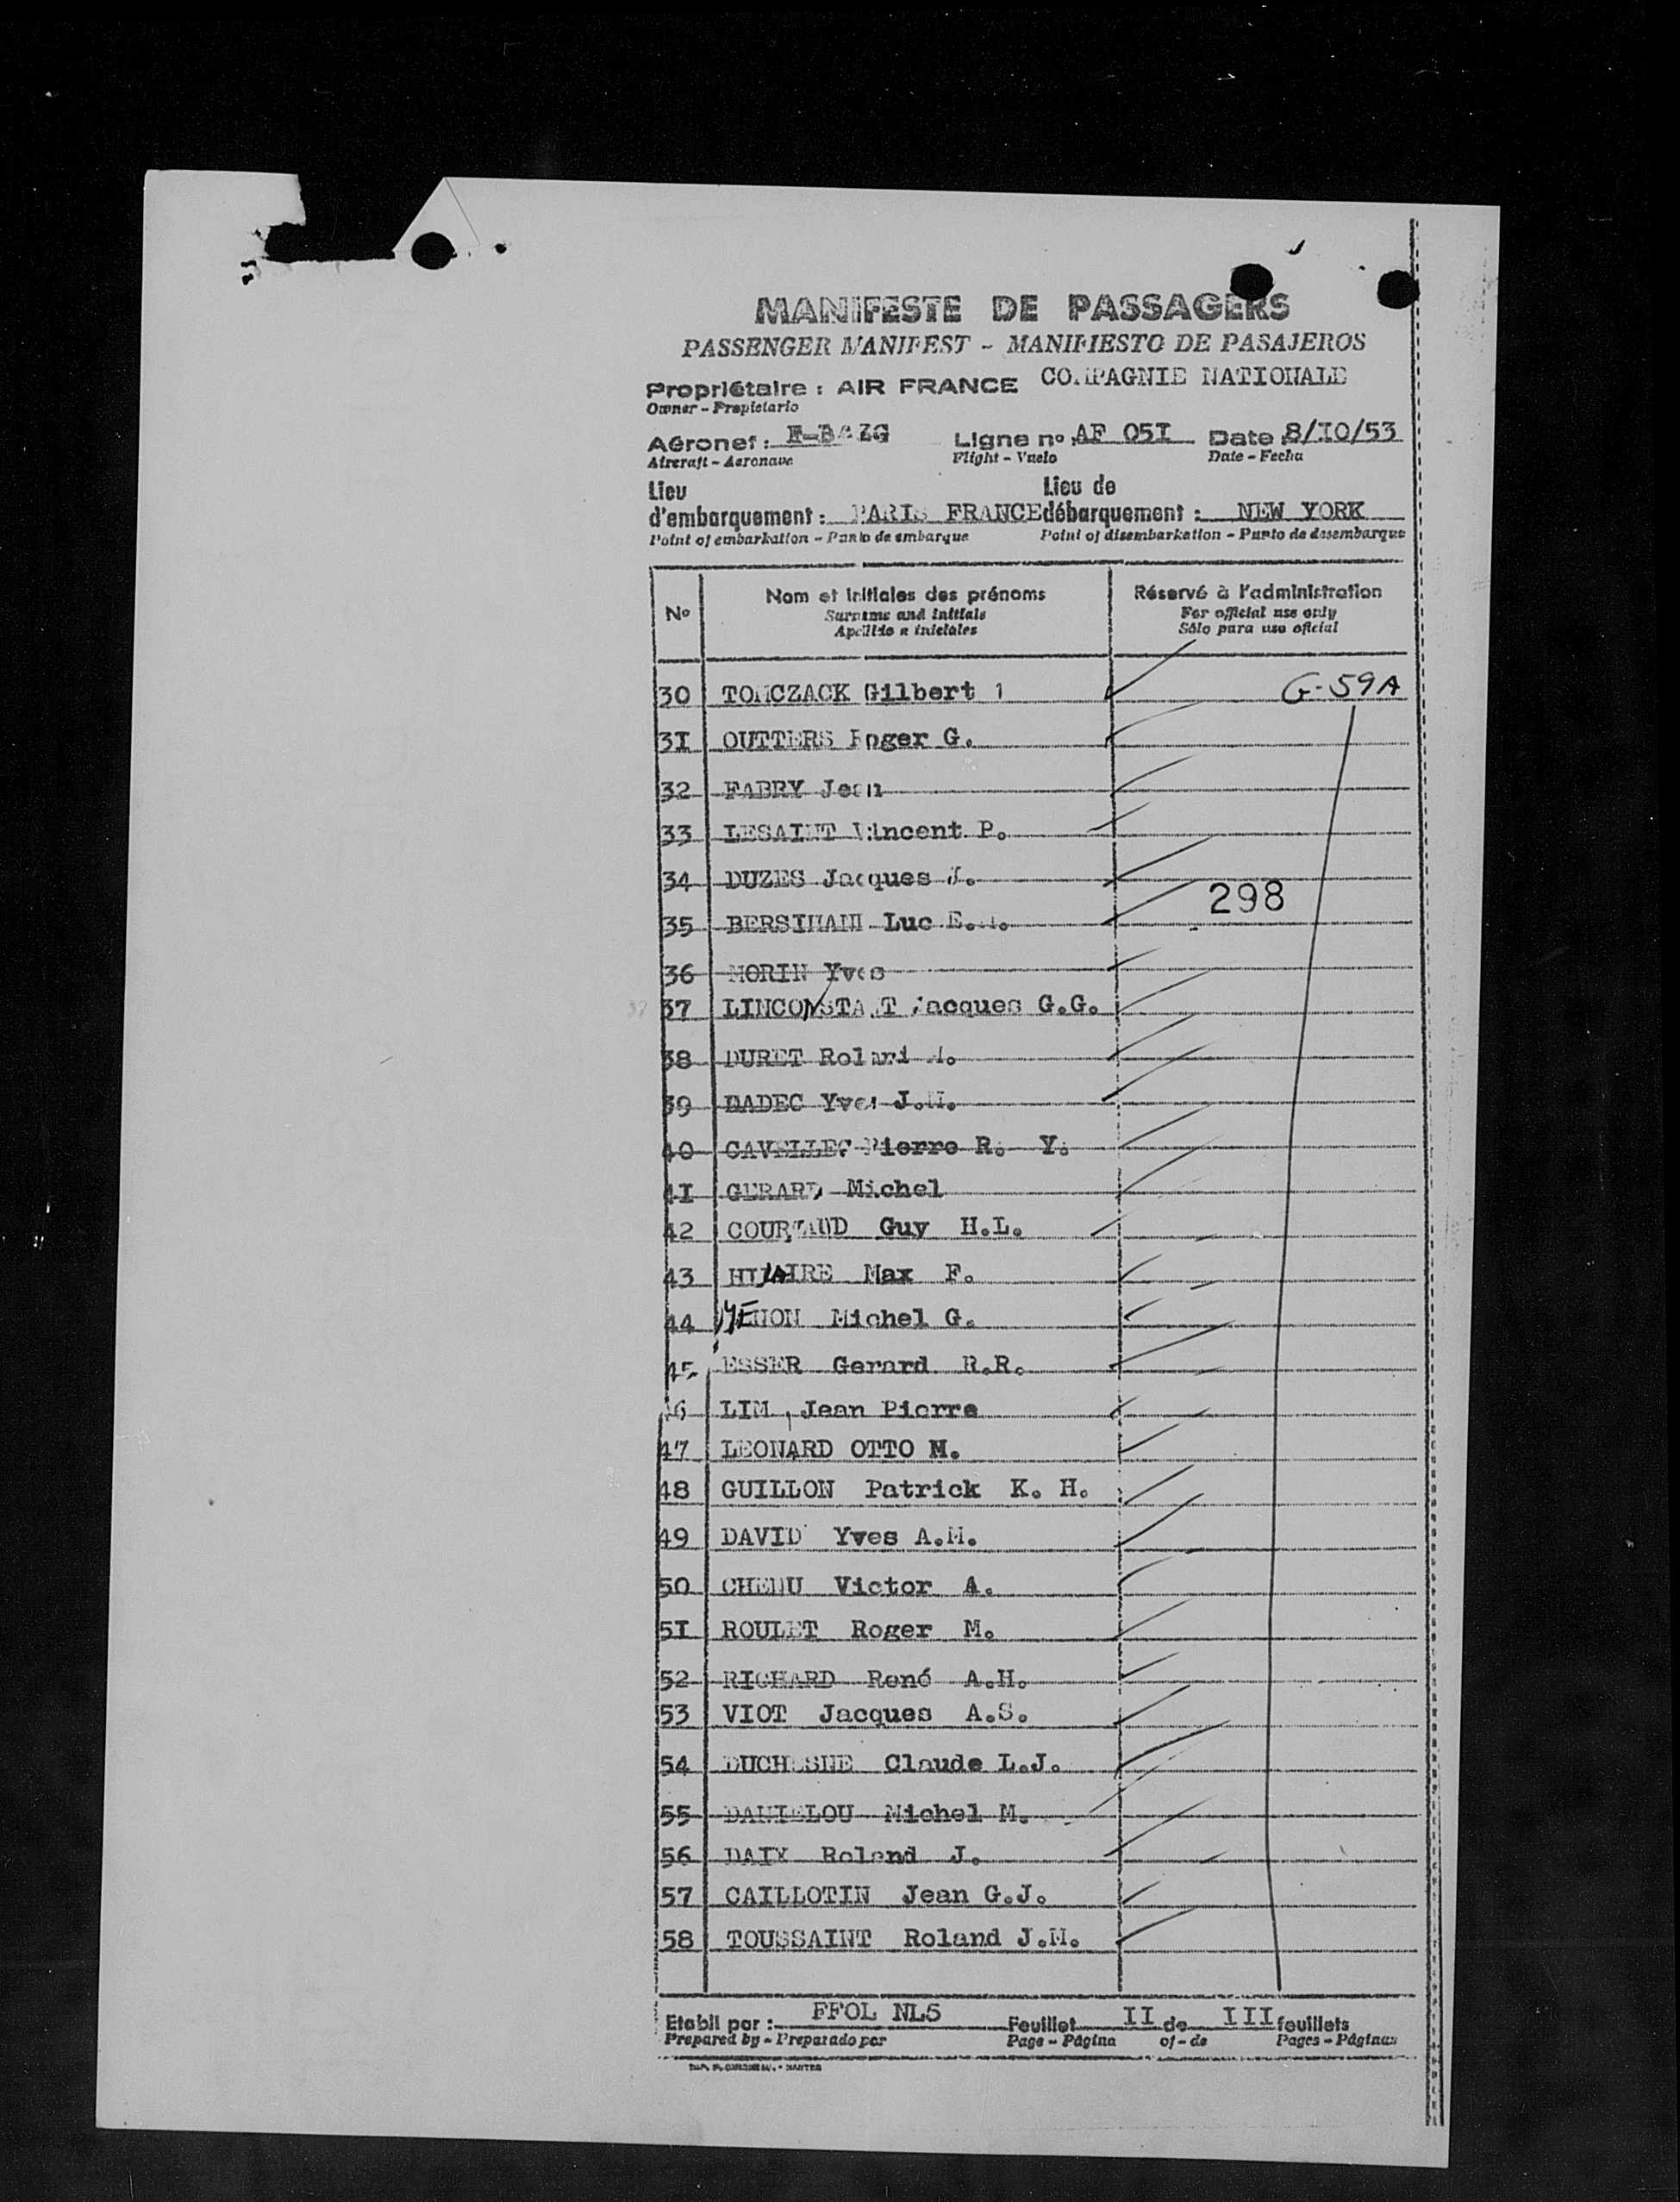 MANIFESTE DE PASSAGERS
PASSENGER MANIFEST - MANIFIESTO DE PASAJEROS
Propriétaire : AIR FRANCE COMPAGNIE NATIONALE
Owner - Propietario
Aéronef : F-BAZG Ligne nº AF 05I Date 8/IO/53
Aircraft - Aeronave Flight - Vuelo Date - Fecha
Lieu Lieu de
d'embarquement : PARIS FRANCE débarquement : NEW YORK
Point of embarkation - Punto de embarque Point of disembarkation - Punto de desembarque
Nº Nom et initiales des prénoms Réservé à l'administration
Surname and initials For official use only
Apellido e iniciales Sólo para uso oficial
30 TOMCZACK Gilbert G-59A
3I OUTTERS Roger G.
32 FABRY Jean
33 LESAINT Vincent P.
34 DUZES Jacques J.
298
35 Luc E.
36 MORIN Yves
37 LINCONSTANT Jacques G.G.
38 DURET Roland
39 DADEC Yves J.M.
40 CAVELLEC Pierre R. Y.
4I GERARD Michel
42 COURTAUD Guy H.L.
43 HILAIRE Max F.
44 MENON Michel G.
45 ESSER Gerard R.R.
46 LIM Jean Pierre
47 LEONARD OTTO M.
48 GUILLON Patrick K. H.
49 DAVID Yves A.M.
50 CHENU Victor A.
5I ROULET Roger M.
52 RICHARD René A.H.
53 VIOT Jacques A.S.
54 DUCHESNE Claude L.J.
55 DANIELOU Michel M.
56 DAIX Roland J.
57 CAILLOTIN Jean G.J.
58 TOUSSAINT Roland J.M.
Etabli par : FFOL NL5 Feuillet II de III feuillets
Prepared by - Preparado por Page - Página of - de Pages - Páginas